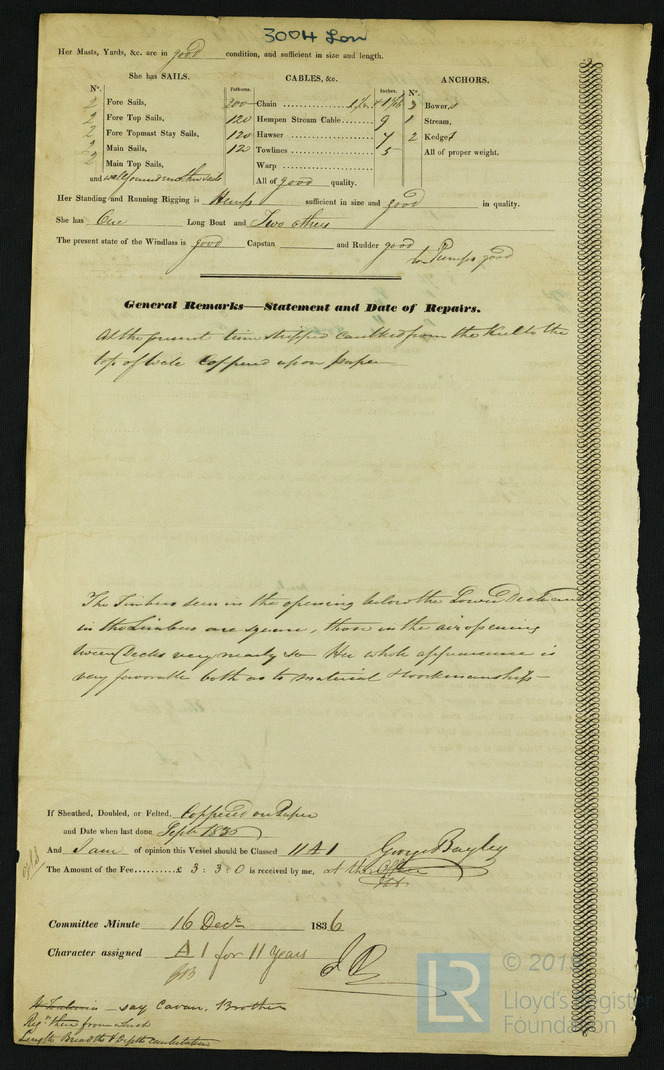 3004 Lon
Her Masts, Yards, &c. are in good condition, and sufficient in size and length.
She has SAILS. CABLES, &c. ANCHORS.
N°. Fathoms. Inches. N°.
2 Fore Sails, 200 Chain 3 Bowers
2 Fore Top Sails, 120 Hempen Stream Cable 9 1 Stream,
2 Fore Topmast Stay Sails, 120 Hawser 7 2 Kedges
2 Main Sails, 120 Towlines 5 All of proper weight.
2 Main Top Sails, Warp
and well found in other sails All of good quality.
Her Standing and Running Rigging is Hemp sufficient in size and good in quality.
She has One Long Boat and Two others
The present state of the Windlass is good Capstan and Rudder good
Pumps good
General Remarks—Statement and Date of Repairs.
At the present time stripped caulked from the Keel to the
top of Wale coppered upon paper
The Timbers seen in the opening below the Lower Deck and
in the Limbers are square, those in the air opening
tween Decks very nearly so Her whole appearance is
very favorable both as to material & workmanship—
If Sheathed, Doubled, or Felted, Coppered on Paper
and Date when last done Sept 1836
And I am of opinion this Vessel should be Classed 11 A 1 George Bayley
The Amount of the Fee £ 3 : 3 : 0 is received by me, at the Office
Committee Minute 16 Decr 1836
Character assigned A 1 for 11 Years
say Cavan, Brothers
Length Breadth & Depth
LR © 2019
Lloyd's Register
Foundation